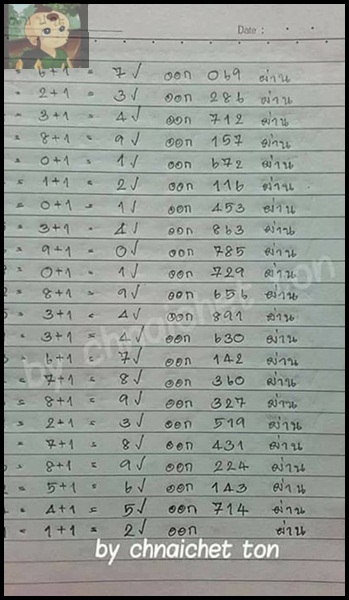 Date :
= 6+1 = 7✓ ออก 069 ผ่าน
= 2+1 = 3✓ ออก 286 ผ่าน
= 3+1 = 4✓ ออก 712 ผ่าน
= 8+1 = 9✓ ออก 157 ผ่าน
= 0+1 = 1✓ ออก 672 ผ่าน
= 1+1 = 2✓ ออก 116 ผ่าน
= 0+1 = 1✓ ออก 453 ผ่าน
= 3+1 = 4✓ ออก 863 ผ่าน
= 9+1 = 0✓ ออก 785 ผ่าน
= 0+1 = 1✓ ออก 729 ผ่าน
= 8+1 = 9✓ ออก 656 ผ่าน
= 3+1 = 4✓ ออก 891 ผ่าน
= 3+1 = 4✓ ออก 630 ผ่าน
= 6+1 = 7✓ ออก 142 ผ่าน
= 7+1 = 8✓ ออก 360 ผ่าน
= 8+1 = 9✓ ออก 327 ผ่าน
= 2+1 = 3✓ ออก 519 ผ่าน
= 7+1 = 8✓ ออก 431 ผ่าน
= 8+1 = 9✓ ออก 224 ผ่าน
= 5+1 = 6✓ ออก 143 ผ่าน
= 4+1 = 5✓ ออก 714 ผ่าน
= 1+1 = 2✓ ออก ผ่าน
by chnaichet ton
by chnaichet ton